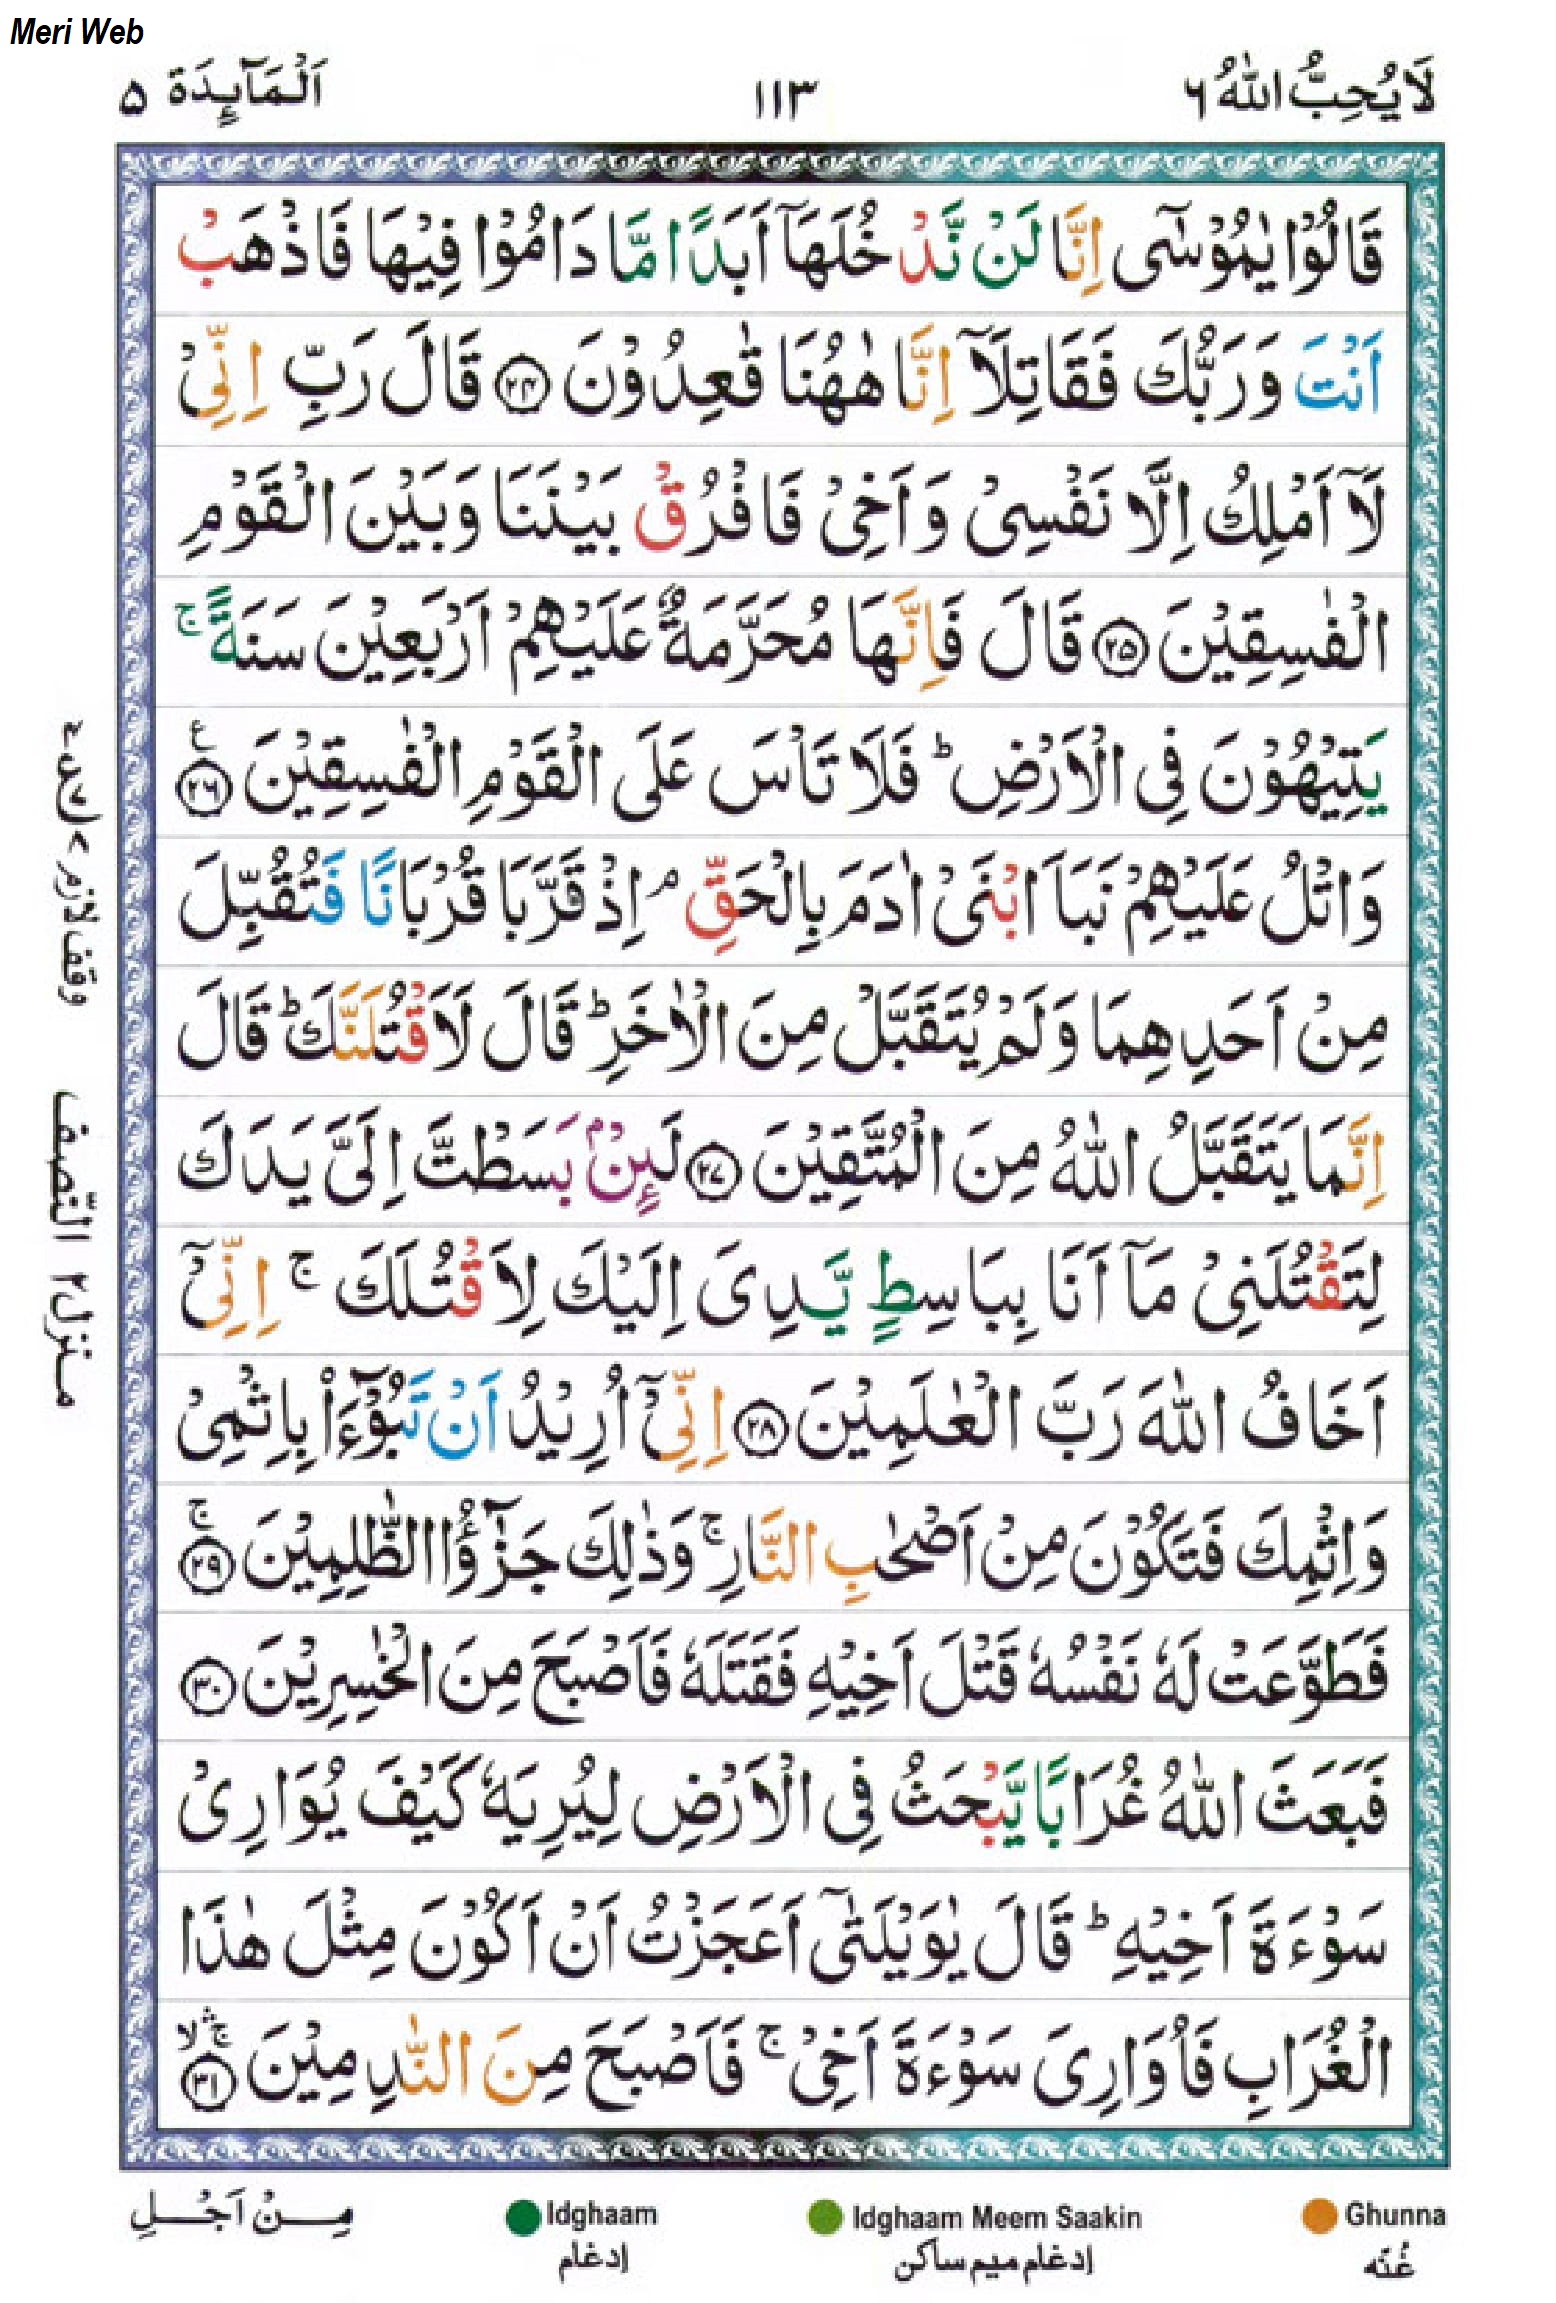 Meri Web
لَا يُحِبُّ اللّٰهُ ٦
١١٣
اَلْمَآئِدَة ٥
قَالُوْا يٰمُوْسٰٓى اِنَّا لَنْ نَّدْخُلَهَاۤ اَبَدًا مَّا دَامُوْا فِيْهَا فَاذْهَبْ
اَنْتَ وَرَبُّكَ فَقَاتِلَاۤ اِنَّا هٰهُنَا قٰعِدُوْنَ ﴿٢٤﴾ قَالَ رَبِّ اِنِّيْ
لَاۤ اَمْلِكُ اِلَّا نَفْسِيْ وَ اَخِيْ فَافْرُقْ بَيْنَنَا وَبَيْنَ الْقَوْمِ
الْفٰسِقِيْنَ ﴿٢٥﴾ قَالَ فَاِنَّهَا مُحَرَّمَةٌ عَلَيْهِمْ اَرْبَعِيْنَ سَنَةً ۚ
يَتِيْهُوْنَ فِي الْاَرْضِ ؕ فَلَا تَاْسَ عَلَى الْقَوْمِ الْفٰسِقِيْنَ ﴿٢٦﴾ ع
وَاتْلُ عَلَيْهِمْ نَبَاَ ابْنَيْ اٰدَمَ بِالْحَقِّ ۘ اِذْ قَرَّبَا قُرْبَانًا فَتُقُبِّلَ
مِنْ اَحَدِهِمَا وَلَمْ يُتَقَبَّلْ مِنَ الْاٰخَرِ ؕ قَالَ لَاَقْتُلَنَّكَ ؕ قَالَ
اِنَّمَا يَتَقَبَّلُ اللّٰهُ مِنَ الْمُتَّقِيْنَ ﴿٢٧﴾ لَئِنْۢ بَسَطْتَّ اِلَيَّ يَدَكَ
لِتَقْتُلَنِيْ مَاۤ اَنَا بِبَاسِطٍ يَّدِيَ اِلَيْكَ لِاَقْتُلَكَ ۚ اِنِّيْۤ
اَخَافُ اللّٰهَ رَبَّ الْعٰلَمِيْنَ ﴿٢٨﴾ اِنِّيْۤ اُرِيْدُ اَنْ تَبُوْٓءَاْ بِاِثْمِيْ
وَاِثْمِكَ فَتَكُوْنَ مِنْ اَصْحٰبِ النَّارِ ۚ وَذٰلِكَ جَزٰٓؤُا الظّٰلِمِيْنَ ۚ ﴿٢٩﴾
فَطَوَّعَتْ لَهٗ نَفْسُهٗ قَتْلَ اَخِيْهِ فَقَتَلَهٗ فَاَصْبَحَ مِنَ الْخٰسِرِيْنَ ﴿٣٠﴾
فَبَعَثَ اللّٰهُ غُرَابًا يَّبْحَثُ فِي الْاَرْضِ لِيُرِيَهٗ كَيْفَ يُوَارِيْ
سَوْءَةَ اَخِيْهِ ؕ قَالَ يٰوَيْلَتٰٓى اَعَجَزْتُ اَنْ اَكُوْنَ مِثْلَ هٰذَا
الْغُرَابِ فَاُوَارِيَ سَوْءَةَ اَخِيْ ۚ فَاَصْبَحَ مِنَ النّٰدِمِيْنَ ۛۚۙ ﴿٣١﴾
وقف لازم
النّصف
منزل ٢
مِنْ اَجْلِ
Idghaam
Idghaam Meem Saakin
Ghunna
إدغام
إدغام ميم ساكن
غُنّه